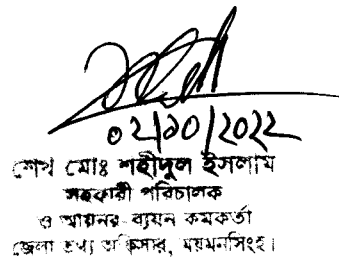 ০২/১০/২০২২
শেখ মোঃ শহীদুল ইসলাম
সহকারী পরিচালক
ও আয়নর ব্যয়ন কমকর্তা
জেলা তথ্য অফিসার, ময়মনসিংহ।